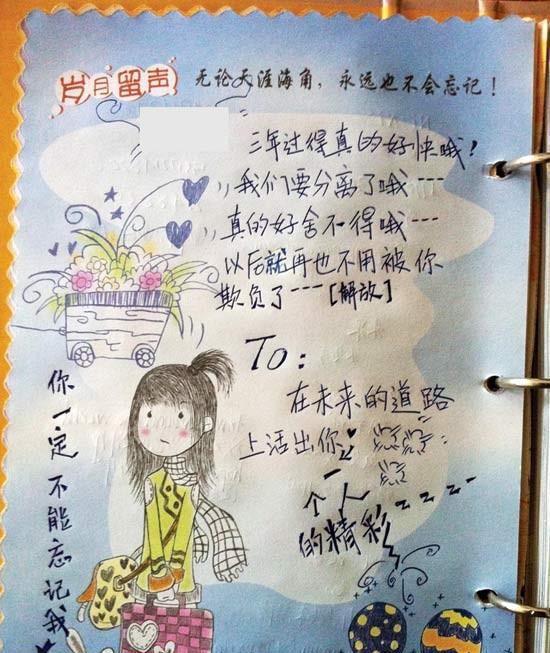 岁月留声
无论天涯海角，永远也不会忘记！
三年过得真的好快哦！
我们要分离了哦---
真的好舍不得哦---
以后就再也不用被你
欺负了---【解放】
To：
在未来的道路
上活出你
一
个人
的精彩
你一定不能忘记我